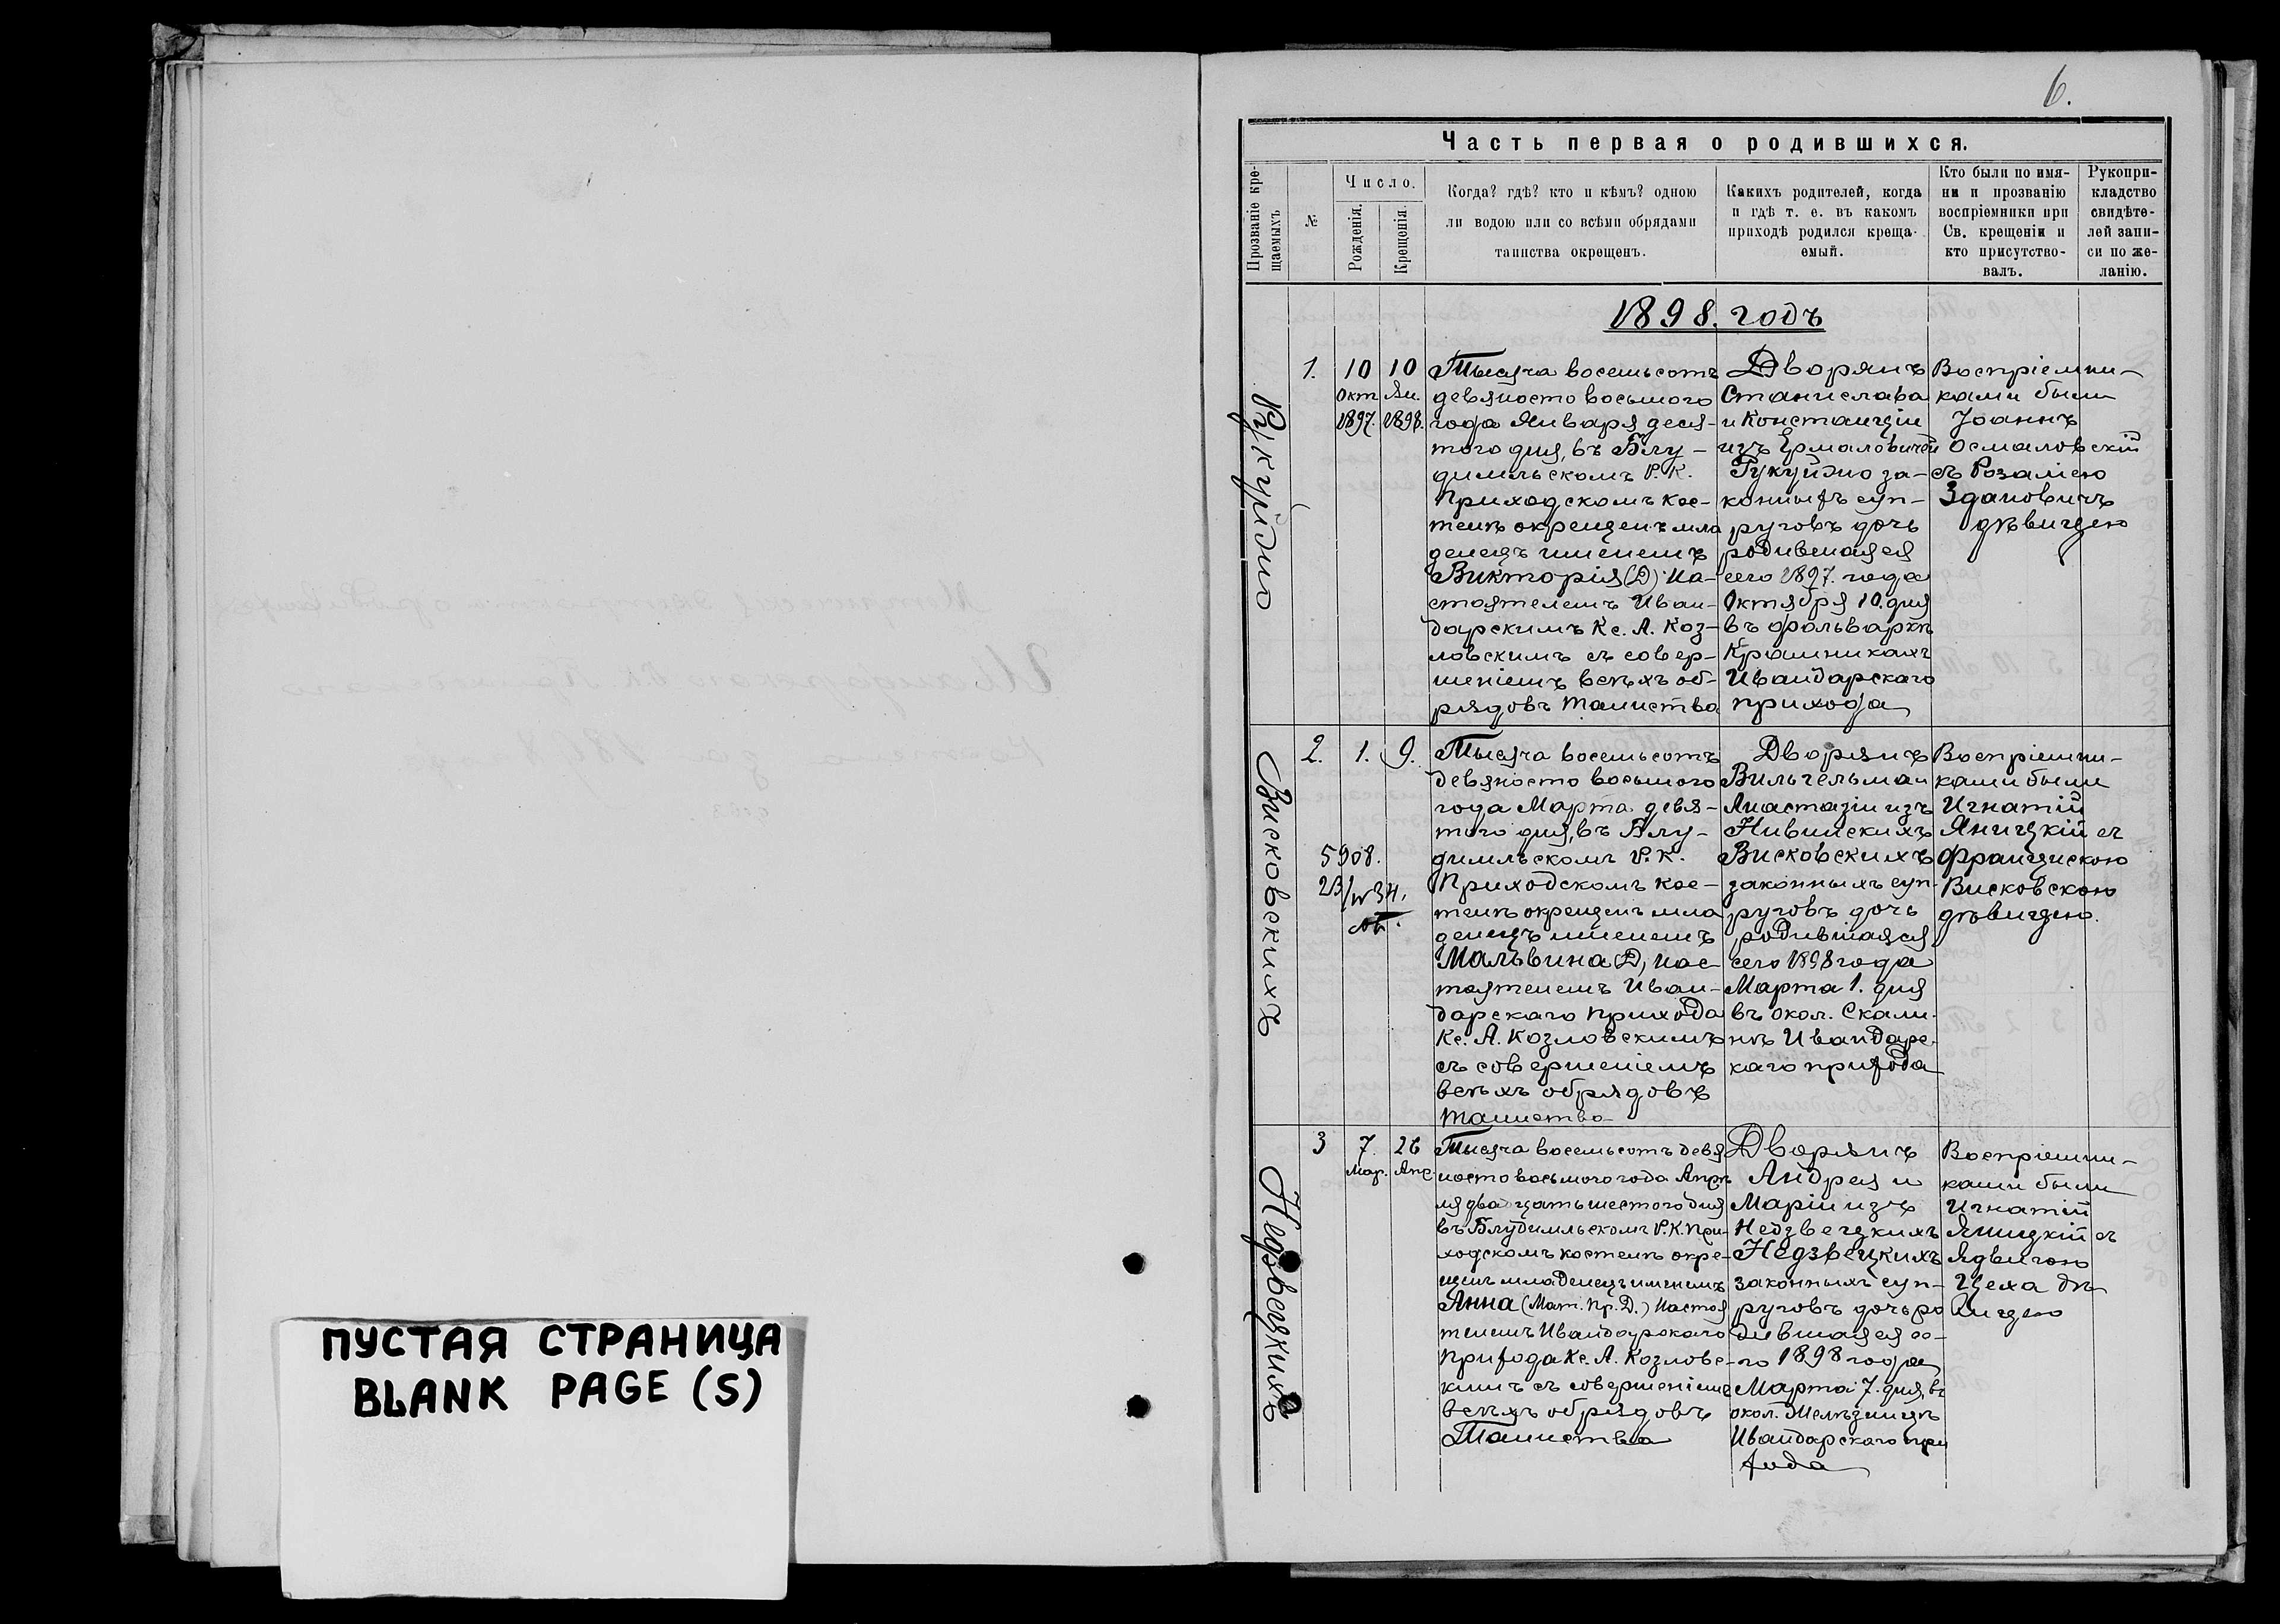 ПУСТАЯ СТРАНИЦА
BLANK PAGE (S)
6.
Часть первая о родившихся.
Прозваніе кре-
щаемыхъ
№
Число.
Рожденія.
Крещенія.
Когда? гдѣ? кто и кѣмъ? одною
ли водою или со всѣми обрядами
таинства окрещенъ.
Какихъ родителей, когда
и гдѣ т. е. въ какомъ
приходѣ родился креща-
емый.
Кто были по имя-
ни и прозванію
воспріемники при
Св. крещеніи и
кто присутство-
валъ.
Рукопри-
кладство
свидѣте-
лей запи-
си по же-
ланію.
1898. годъ
1.
10
Окт
1897.
10
Ян.
1898.
Тысяча восемьсотъ
девяносто восьмого
года Января деся-
того дня, въ Блу-
димльскомъ Р. К.
Приходскомъ кос-
телѣ окрещенъ мла
денецъ именемъ
Викторія (Д) На-
стоятелемъ Иван-
дарскимъ Кс. А. Коз-
ловскимъ съ совер-
шеніемъ всѣхъ об-
рядовъ таинства
Дворянъ
Станислава
и Констанціи
изъ Ермаловичей
Рукуйжо за-
конныхъ суп-
руговъ дочь
родившаяся
сего 1897. года
Октября 10. дня
въ фольваркѣ
Ивандарскаго
прихода
Воспріемни-
ками были
Іоаннъ
Осмаловскій
съ Розаліею
Здановичъ
дѣвицею
Висковскихъ
2.
1.
9.
5908.
Тысяча восемьсотъ
девяносто восьмого
года Марта девя-
того дня, въ Блу-
димльскомъ Р. К.
Приходскомъ кос-
телѣ окрещенъ мла
денецъ именемъ
Мальвина (Д) нас-
тоятелемъ Иван-
дарскаго прихода
Кс. А. Козловскимъ
съ совершеніемъ
всѣхъ обрядовъ
таинства
Дворянъ
Вильгельма и
Анастазіи изъ
Нивинскихъ
Висковскихъ
законныхъ суп-
руговъ дочь
родившаяся
сего 1898 года
Марта 1. дня
въ окол. Скали-
нѣ Ивандарс-
каго прихода
Воспріемни-
ками были
Игнатій
Яницкій съ
Францискою
Висковскою
дѣвицею.
Недзвецкихъ
3
7.
Мар.
26
Апр.
Тысяча восемьсотъ девя
носто восьмого года Апрѣ
ля двадцать шестого дня
въ Блудимльскомъ Р. К. При-
ходскомъ костелѣ окре-
щенъ младенецъ именемъ
Анна (Мат. пр. Д.) Настоя
телемъ Ивандарскаго
Прихода Кс. А. Козловс-
кимъ съ совершеніемъ
всѣхъ обрядовъ
Таинства
Дворянъ
Андрея и
Маріи изъ
Недзвецкихъ
Недзвецкихъ
законныхъ суп-
руговъ дочь ро
дившаяся се-
го 1898 года
Марта 7. дня, въ
Ивандарскаго при
хода
Воспріемни-
ками были
Игнатій
Яницкій съ
Ядвигою
Цеха дѣ
вицею